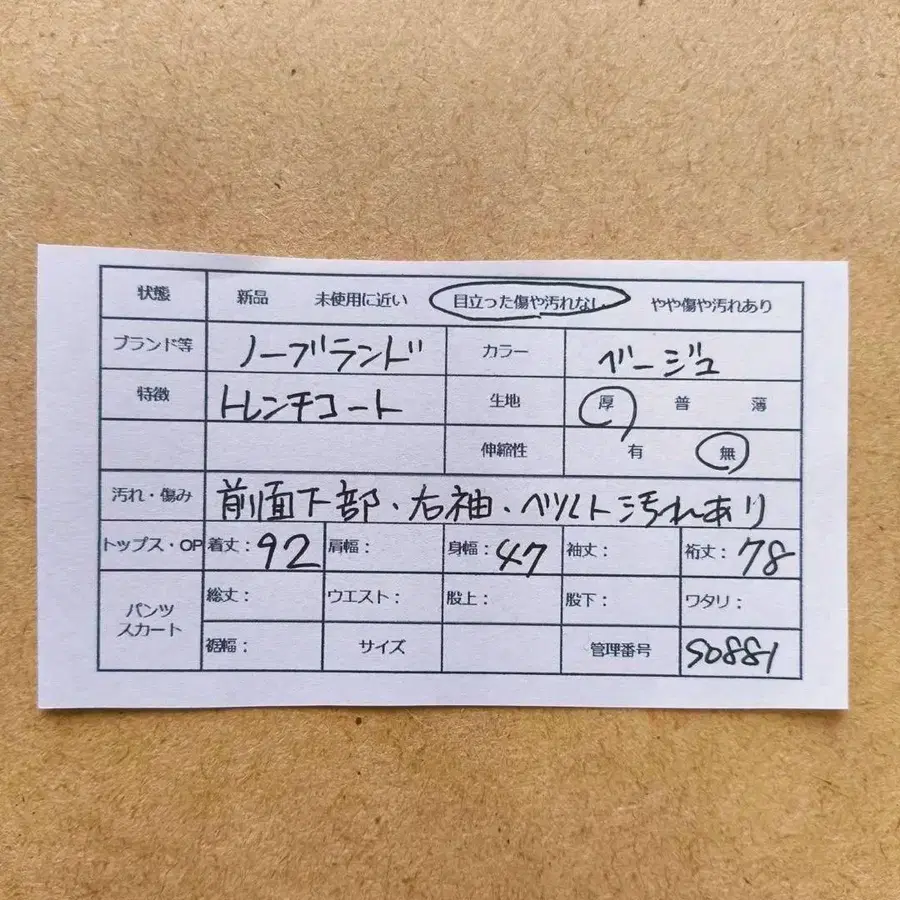 状態 新品 未使用に近い 目立った傷や汚れなし やや傷や汚れあり
ブランド等 ノーブランド カラー ベージュ
特徴 トレンチコート 生地 厚 普 薄
伸縮性 有 無
汚れ・傷み 前面下部・右袖・ベルト汚れあり
トップス・OP 着丈:92 肩幅: 身幅:47 袖丈: 裄丈:78
パンツ スカート 総丈: ウエスト: 股上: 股下: ワタリ:
裾幅: サイズ 管理番号 S0881